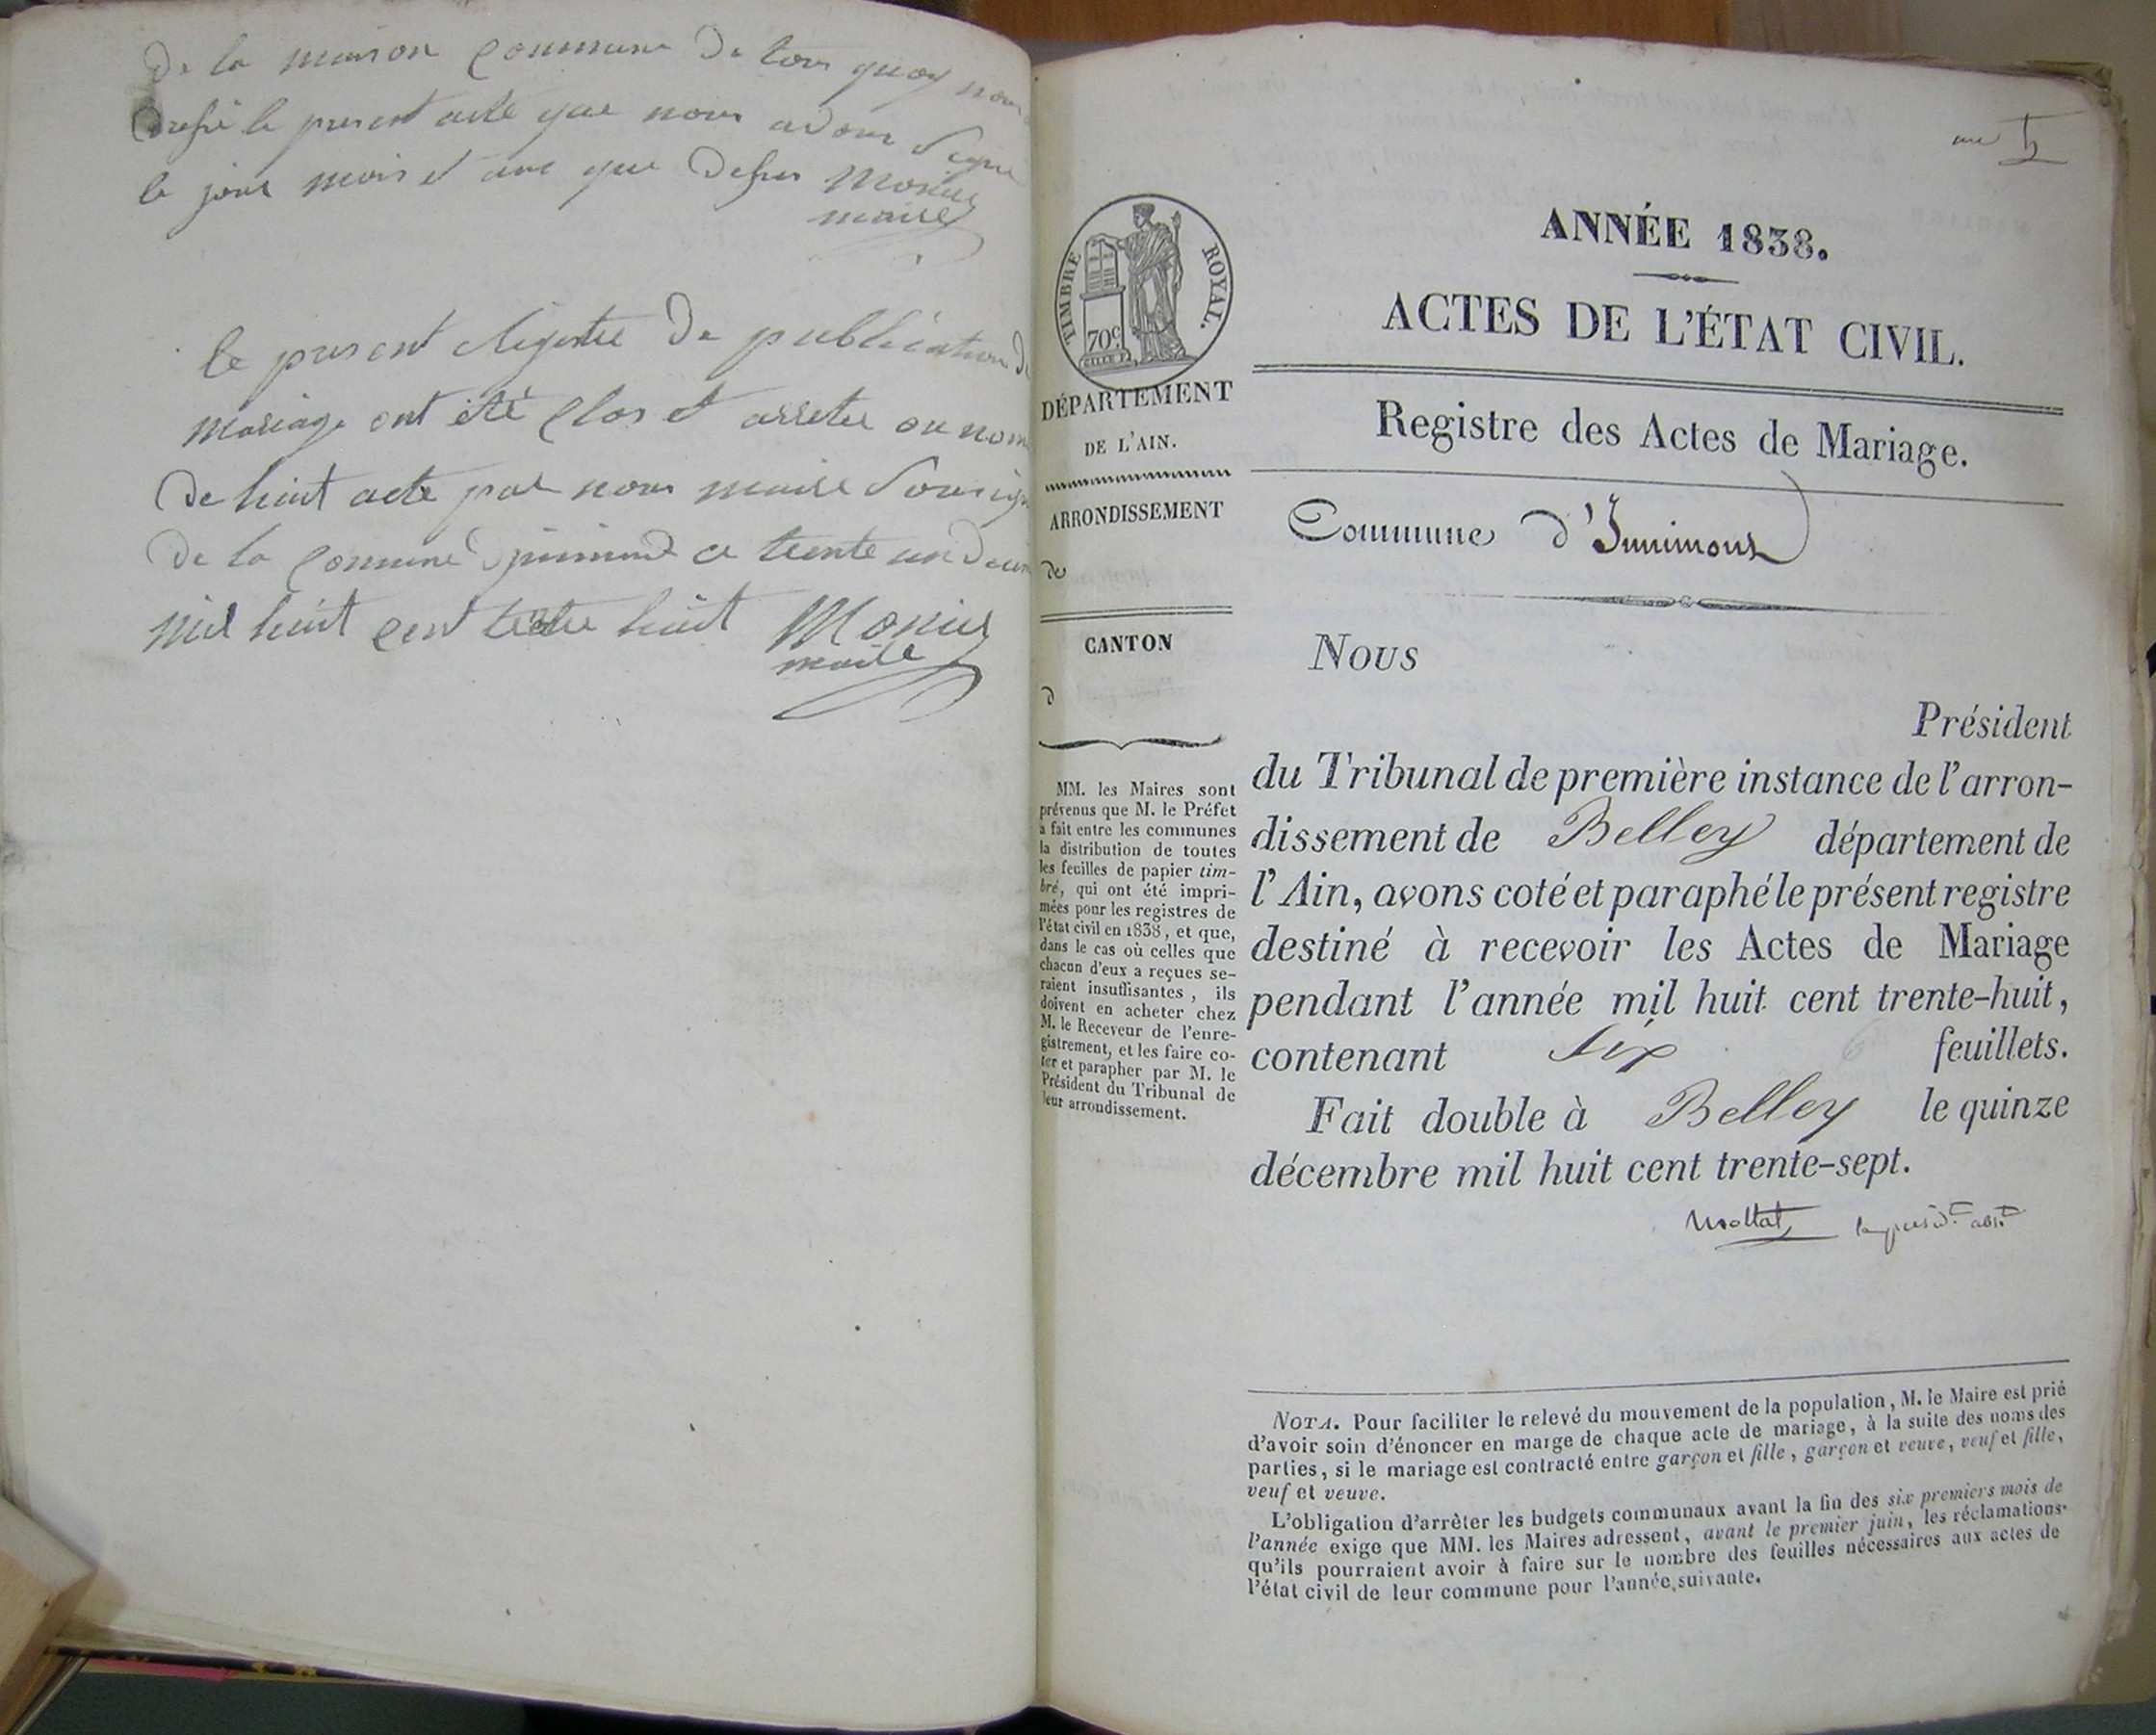 De la maison commune De tous quoy nous
Dressé le present acte que nous avons Signé
le jour mois et ans que Dessus Monier
maire
le present Registre De publication De
Mariage ont été Clos et arreter au nom
De huit acte par nous maire Sousigné
De la Comune ce trente un Decem
mil huit cent trente huit Monier
maire
une
ANNÉE 1838.
ACTES DE L'ÉTAT CIVIL.
Registre des Actes de Mariage.
Commune d'Innimont
TIMBRE ROYAL.
70c
DÉPARTEMENT
DE L'AIN.
ARRONDISSEMENT
de
CANTON
d
MM. les Maires sont
prévenus que M. le Préfet
a fait entre les communes
la distribution de toutes
les feuilles de papier tim-
bré, qui ont été impri-
mées pour les registres de
l'état civil en 1838, et que,
dans le cas où celles que
chacun d'eux a reçues se-
raient insuffisantes, ils
doivent en acheter chez
M. le Receveur de l'enre-
gistrement, et les faire co-
ter et parapher par M. le
Président du Tribunal de
leur arrondissement.
Nous
Président
du Tribunal de première instance de l'arron-
dissement de Belley département de
l'Ain, avons coté et paraphé le présent registre
destiné à recevoir les Actes de Mariage
pendant l'année mil huit cent trente-huit,
contenant six 6 feuillets.
Fait double à Belley le quinze
décembre mil huit cent trente-sept.
Mollat
NOTA. Pour faciliter le relevé du mouvement de la population, M. le Maire est prié
d'avoir soin d'énoncer en marge de chaque acte de mariage, à la suite des noms des
parties, si le mariage est contracté entre garçon et fille, garçon et veuve, veuf et fille,
veuf et veuve.
L'obligation d'arrêter les budgets communaux avant la fin des six premiers mois de
l'année exige que MM. les Maires adressent, avant le premier juin, les réclamations
qu'ils pourraient avoir à faire sur le nombre des feuilles nécessaires aux actes de
l'état civil de leur commune pour l'année suivante.